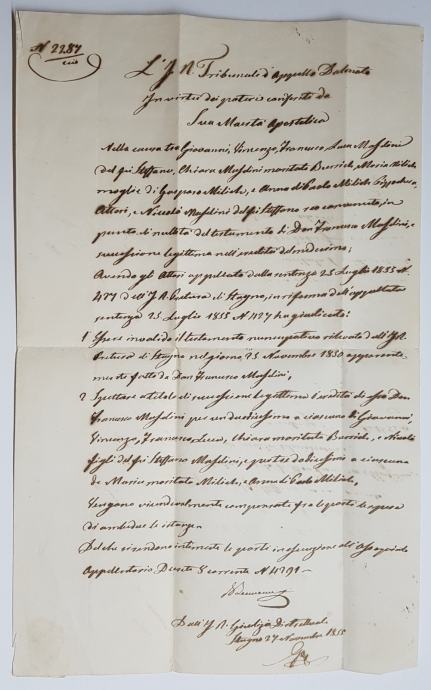 N 2287
L'I. R. Tribunale d'Appello Dalmato
In virtù dei poteri conferiti da
Sua Maestà Apostolica
Nella causa tra Giovanni, Vincenzo, Francesco, Luca
del fu Steffano, Chiara maritata Maria Milich
moglie di Gasparo Milich, e Anna di Paolo Milich
Attori, e Nicolò del fu Steffano reo convenuto, in
punto di nullità del testamento di Don Francesco e
successione legittima nell'eredità del medesimo;
Avendo gli Attori appellato dalla sentenza 25 Luglio 1855 N.
427 dell'I. R. Pretura di Stagno, in riforma dell'appellata
sentenza 25 Luglio 1855 N 427 ha giudicato:
1 Essere invalido il testamento nuncupativo rilevato dall'I. R.
Pretura di Stagno nel giorno 25 Novembre 1850 apparente
mente fatto da Don Francesco
2 Spettare a titolo di successione legittima l'eredità di Don
Francesco per un duodicesimo a ciascuno di Giovanni,
Vincenzo, Francesco, Luca, Chiara maritata e Nicolò
figli del fu Steffano e per tre dodicesimi a ciascuna
di Maria maritata Milich, e Anna di Paolo Milich,
Vengono vicendevolmente compensate fra le parti le spese
di ambedue le istanze
Del che si rendono intese le parti in esecuzione all'Ossequiato
Appellatorio Decreto 8 corrente N. 4791
Dall'I. R. Giudizio Distrettuale
Stagno 27 Novembre 1855